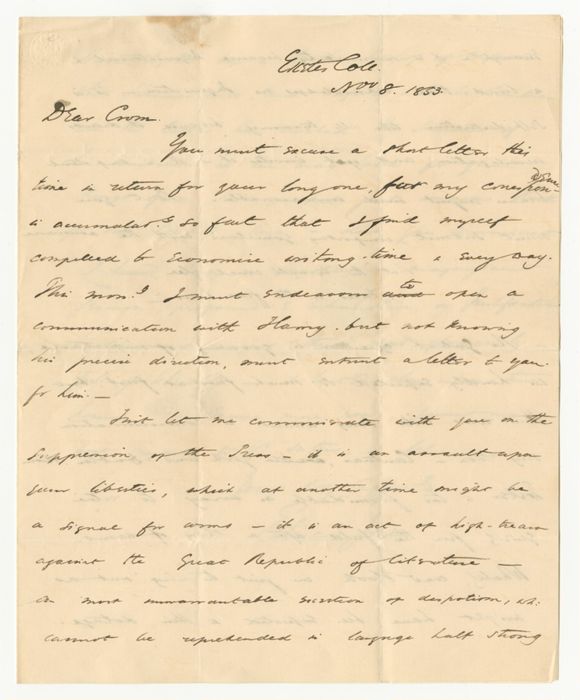 Exeter Coll.
Nov 8. 1833.
Dear Crom.
You must excuse a short letter this
time in return for your long one, for my correspon-
dence
is accumulatg so fast that I find myself
compelled to economise writing-time & every day.
This morng I must endeavour to open a
communication with Harry. but not knowing
his precise direction, must entrust a letter to you
for him.—
Just let me commiserate with you on the
suppression of the — it is an assault upon
your liberties, which at another time might be
a signal for arms — it is an act of high-treason
against the Great Republic of literature —
an most unwarrantable exertion of despotism, wh:
cannot be reprehended in language half strong